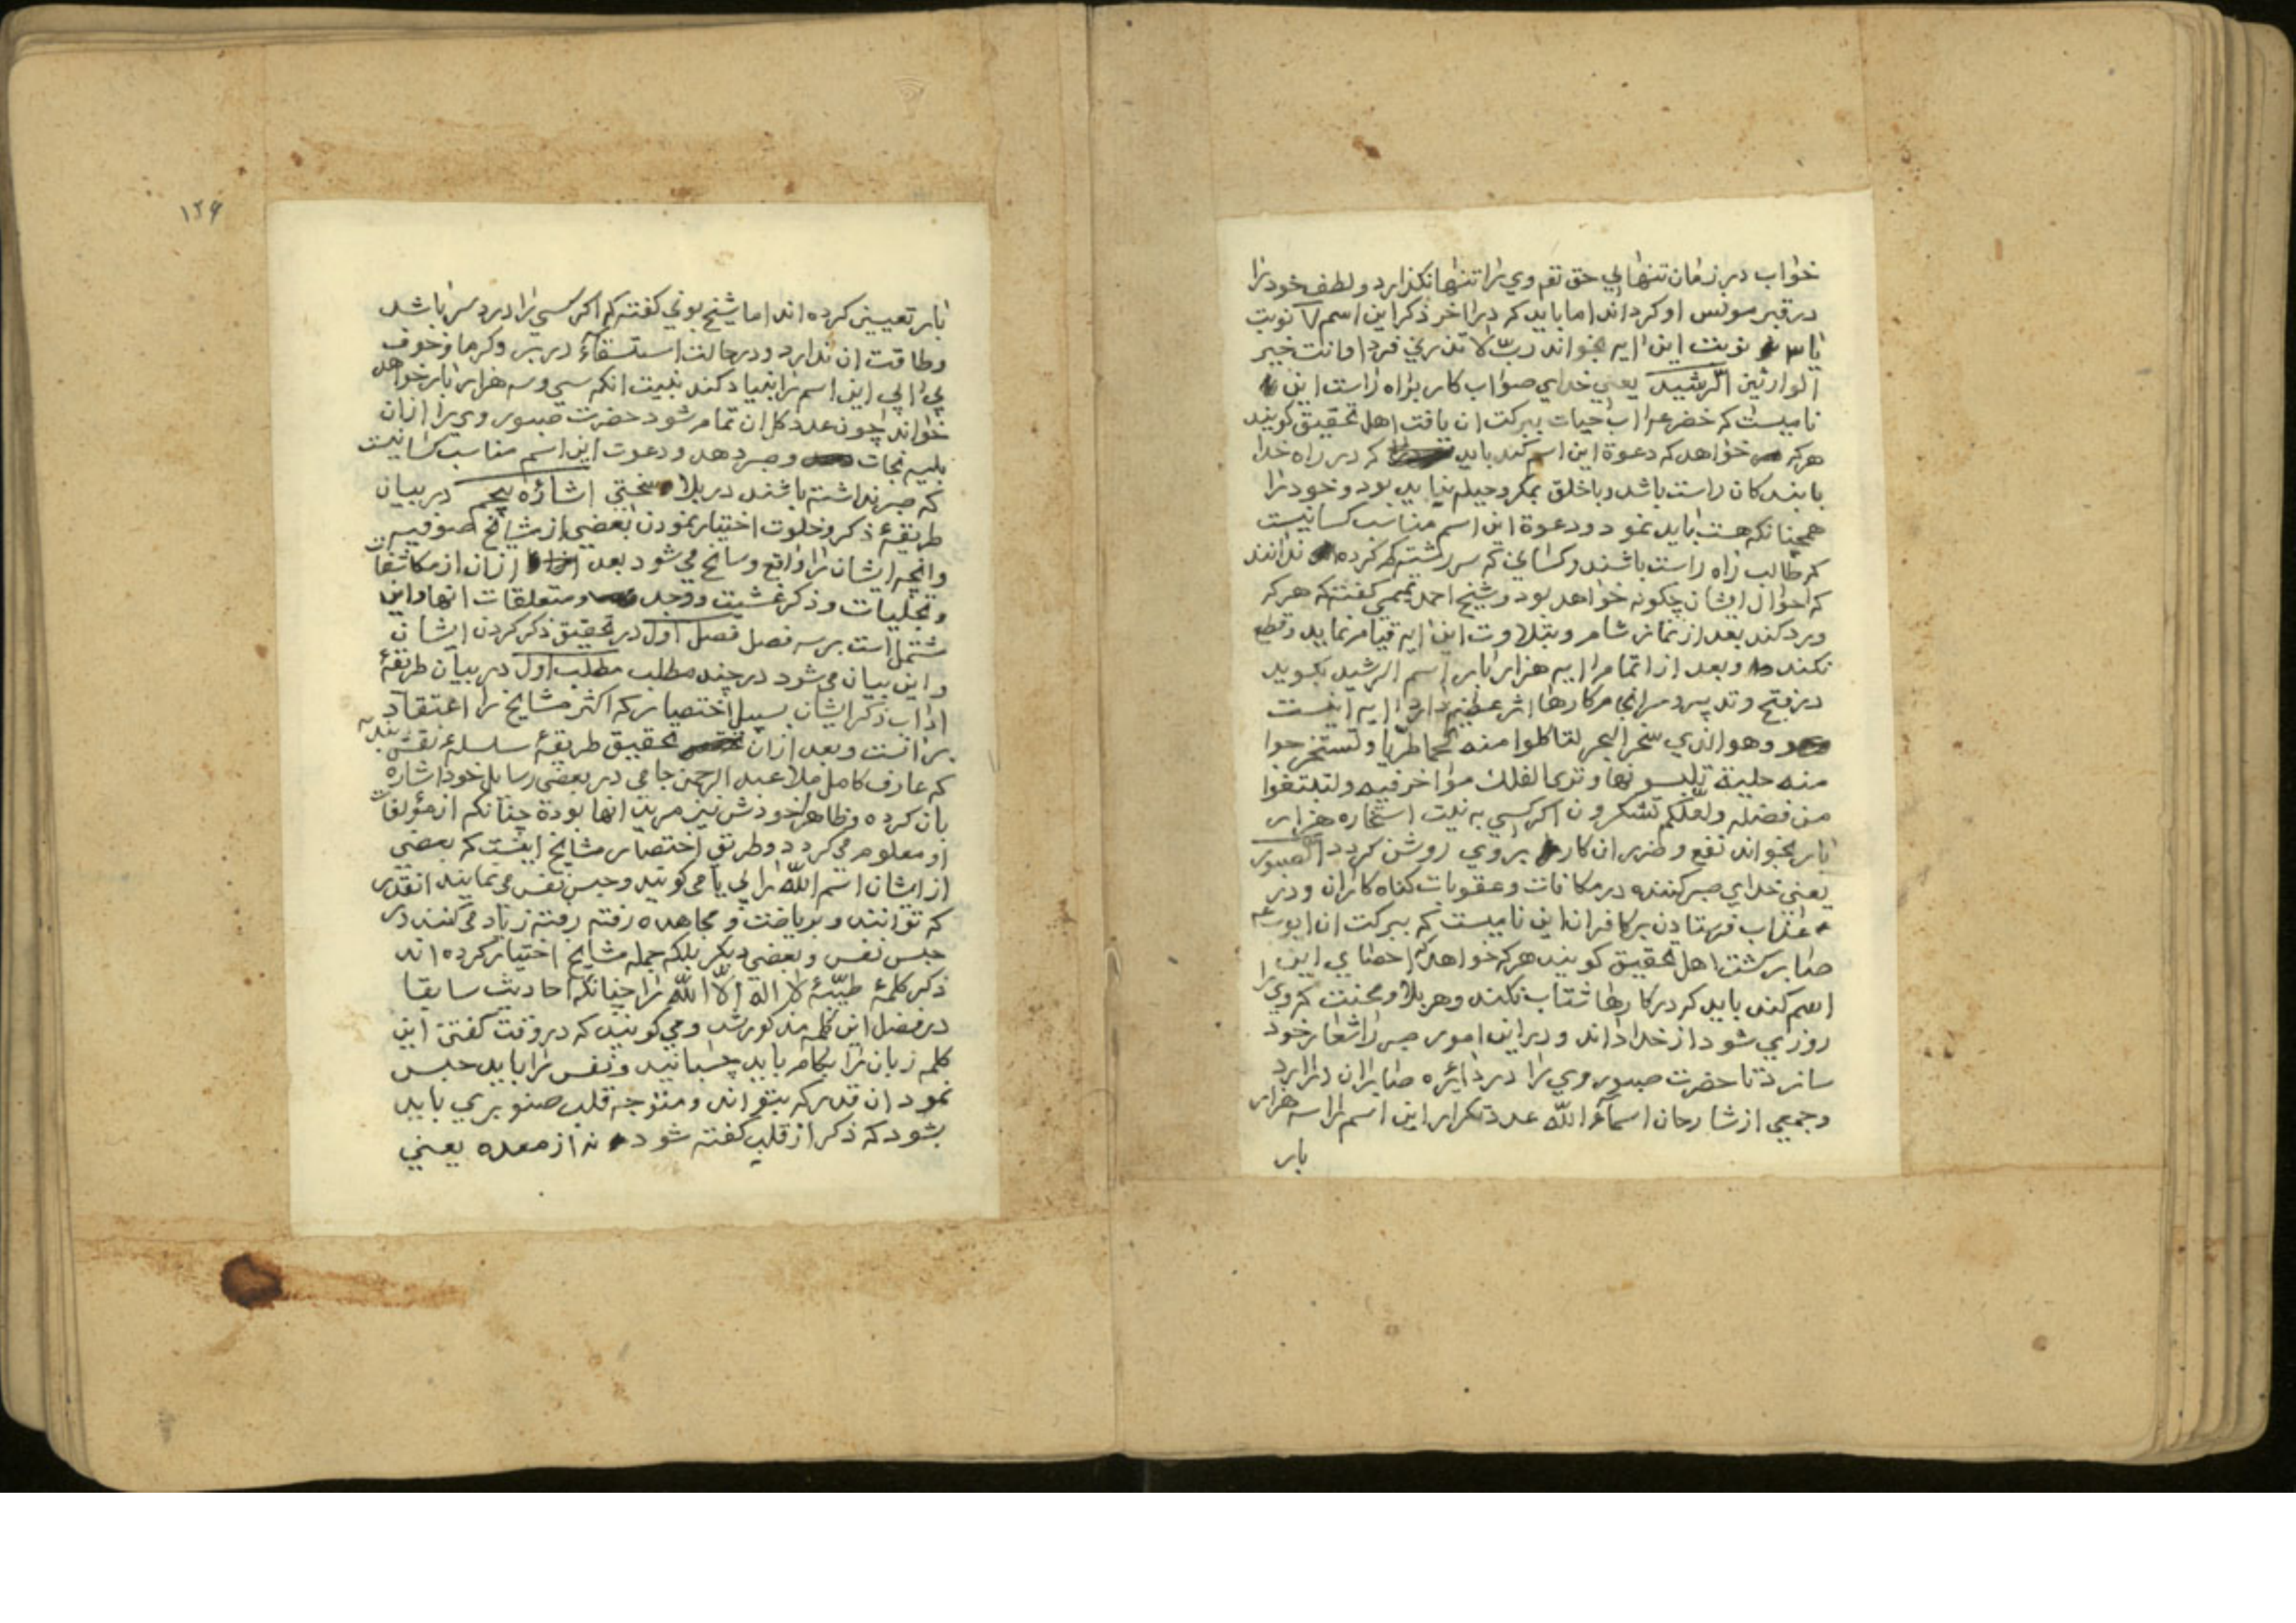 خواب در زمان تنهايي حق تع وي را تنها نكذارد و لطف خود را
در قبر مونس او كرداند اما بايد كه در اخر ذكر اين اسم ٧ نوبت
يا ٣ نوبت اين ايه بخواند ربّ لا تذرني فردا وانت خير
الوارثين الرّشيد يعني خداي صواب كار براه راست اين
ناميست كه خضر ع اب حيات ببركت ان يافت اهل تحقيق كويند
هركه خواهد كه دعوة اين اسم كند بايد كه در راه خدا
با بندكان راست باشد و با خلق بمكر و حيله نيايد بود و خود را
همچنانكه هست بايد نمود و دعوة اين اسم مناسب كسانيست
كه طالب راه راست باشند و كساني كه سر رشته كم كرده ندانند
كه احوال ايشان چكونه خواهد بود و شيخ احمد تميمي كفته كه هركه
ورد كند بعد از نماز شام و بتلاوت اين ايه قيام نمايد و قطع
نكند و بعد از اتمام ايه هزار بار اسم الرشيد بكويد
در فتح و تدبير و سرانجام كارها اثر عظيم دارد ايه اينست
وهو الذي سخر البحر لتاكلوا منه لحما طريا وتستخرجوا
منه حلية تلبسونها وترى الفلك مواخر فيه ولتبتغوا
من فضله ولعلكم تشكرون اكر كسي به نيت استخاره هزار
بار بخواند نفع و ضرر ان كار بر وي روشن كردد الصبور
يعني خداي صبر كننده در مكافات و عقوبات كناه كاران و در
عذاب فرستادن بر كافران اين ناميست كه ببركت ان ايوب ع
صابر كشت اهل تحقيق كويند هركه خواهد كه احصاي اين
اسم كند بايد كه در كارها شتاب نكند و هر بلا و محنت كه وي را
روزي شود از خدا داند و در اين امور صبر را شعار خود
سازد تا حضرت صبور وي را در دائره صابران درارد
و جمعي از شارحان اسماء الله عدد تكرار اين اسم را سه هزار
بار
١٢۶
بار تعيين كرده اند اما شيخ بوني كفته كه اكر كسي را درد سر باشد
و طاقت ان ندارد و در حالت استسقاء در تب و كرما و خوف
پي اپي اين اسم را بنياد كند بنيت انكه سي و سه هزار بار خواهد
خواند چون عدد كل ان تمام شود حضرت صبور وي را از ان
بليه نجات و صبر دهد و دعوت اين اسم مناسب كسانيست
كه صبر نداشته باشند در بلا و سختي اشاره پنجم در بيان
طريقهٔ ذكر و خلوت اختيار نمودن بعضي از مشايخ صوفيه
و انچه ايشان را واقع و سانح مي شود بعد از ان از مكاشفات
و تجليات و ذكر غشيت و وجد و متعلقات انها و اين
مشتمل است بر سه فصل فصل اول در تحقيق ذكر كردن ايشان
و اين بيان مي شود در چند مطلب مطلب اول در بيان طريقهٔ
اداب ذكر ايشان بسبيل اختصار كه اكثر مشايخ را اعتقاد
بر انست و بعد از ان تحقيق طريقهٔ سلسلهٔ نقش بنديه
كه عارف كامل ملا عبد الرحمن جامي در بعضي رسايل خود اشاره
بان كرده و ظاهرا خودش نيز مريد انها بوده چنانكه از مؤلفات
او معلوم مي كردد و طريق اختصار مشايخ اينست كه بعضي
از ايشان اسم الله را لي يا مي كويند و حبس نفس مي نمايند انقدر
كه توانند و برياضت و مجاهده رفته رفته زياد مي كنند در
حبس نفس و بعضي ديكر بلكه جمله مشايخ اختيار كرده اند
ذكر كلمهٔ طيّبهٔ لا اله الّا الله را چنانكه احاديث سابقا
در فضل اين كلمه مذكور شد و مي كويند كه در وقت كفتن اين
كلمه زبان را بكام بايد چسبانيد و نفس را بايد حبس
نمود ان قدر كه بتواند و متوجه قلب صنوبري بايد
بشود كه ذكر از قلب كفته شود نه از معده يعني